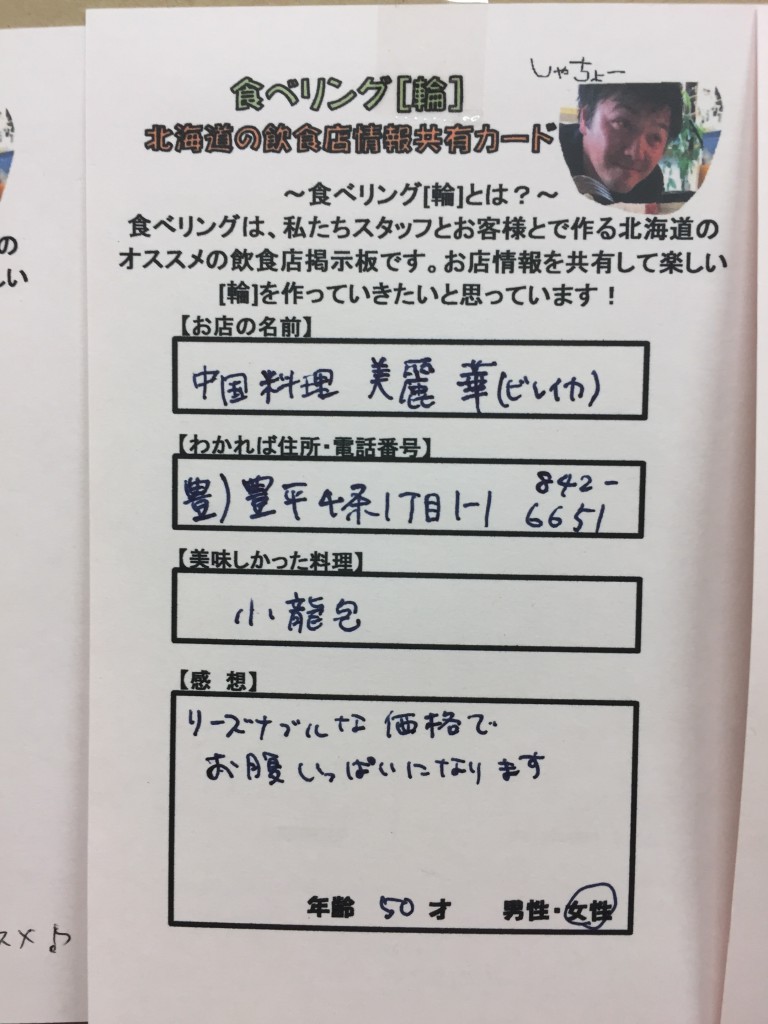 しゃちょー
食べリング[輪]
北海道の飲食店情報共有カード
～食べリング[輪]とは？～
食べリングは、私たちスタッフとお客様とで作る北海道の
オススメの飲食店掲示板です。お店情報を共有して楽しい
[輪]を作っていきたいと思っています！
【お店の名前】
中国料理 美麗華(ビレイカ)
【わかれば住所・電話番号】
豊)豊平4条1丁目1-1 842-
6651
【美味しかった料理】
小龍包
【感 想】
リーズナブルな価格で
お腹いっぱいになります
年齢 50 才 男性・女性
の
しい
スメ♪